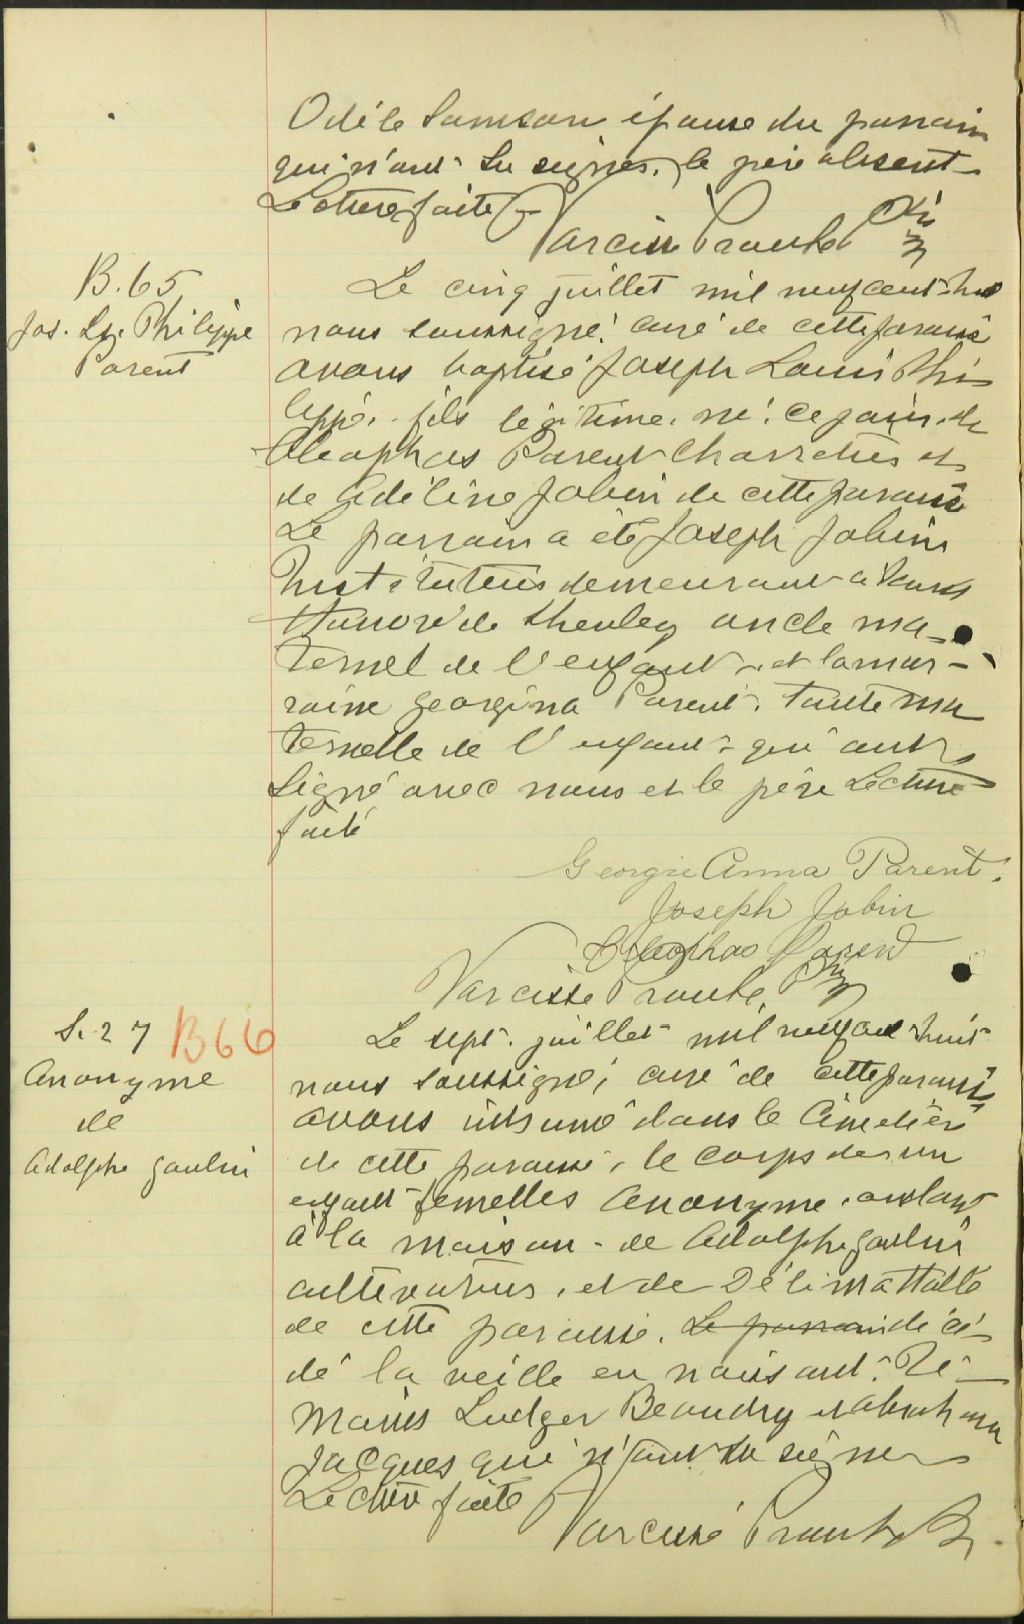 Odile Samson épouse du parrain
qui n'ont su signer. le père absent
Lecture faite
Narcisse Proulx Ptr
B. 65
Jos. Ls. Philippe
Parent
Le cinq juillet mil neuf cent huit
nous soussigné curé de cette paroisse
avons baptisé Joseph Louis Phi-
lippe, fils légitime, né ce jour de
Cléophas Parent charretier et
de Adéline Jobin de cette paroisse
Le parrain a été Joseph Jobin
Instituteur demeurant à
Honoré de Shenley oncle ma-
ternel de l'enfant, et la mar-
raine Georgina Parent, tante ma
ternelle de l'enfant qui ont
signé avec nous et le père Lecture
faite
Georgie Anna Parent.
Joseph Jobin
Cléophas Parent
Narcisse Proulx Ptr
S. 27 B66
Anonyme
de
Adolphe Goulin
Le sept juillet mil neuf cent huit
nous soussigné, curé de cette paroisse
avons inhumé dans le cimetière
de cette paroisse, le corps de un
enfant femelles Anonyme, ondoyé
à la maison - de Adolphe Goulin
cultivateur, et de Délima
de cette paroisse. Le parrain décé-
dé la veille en naissant. Té-
moins Ludger Beaudry et Abraham
Jacques qui n'ont su signer
Lecture faite
Narcisse Proulx Ptr.